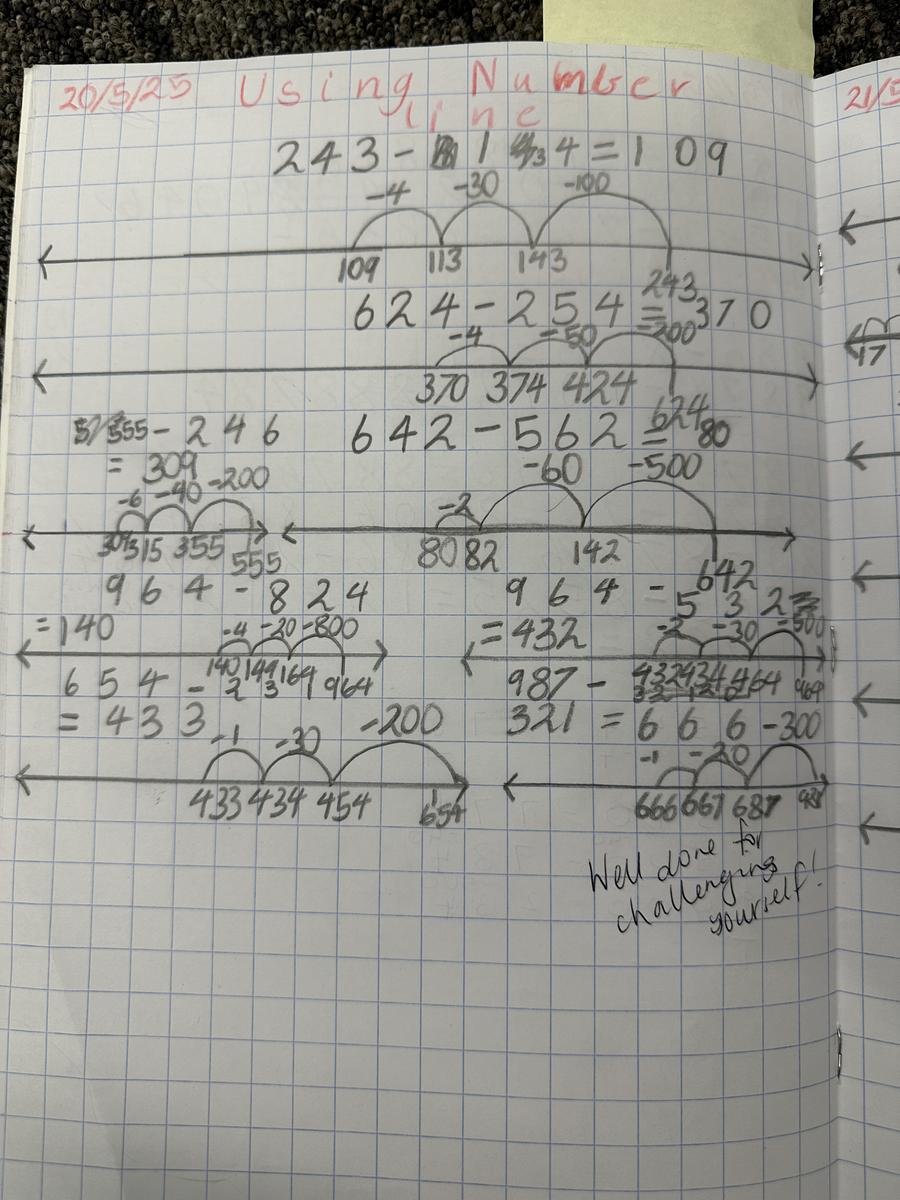 20/5/25 Using Number
line
21/5
243 - 1 3 4 = 1 0 9
-4 -30 -100
109 113 143 243
624 - 254 = 370
-4 -50 -200
17
370 374 424 624
555 - 246
= 309
-6 -40 -200
309 315 355 555
642 - 562 = 80
-2 -60 -500
80 82 142 642
964 - 824
= 140
-4 -20 -800
140 144 164 964
964 - 532
= 432
-2 -30 -500
432 434 464 964
654 - 2 3 1
= 433
-1 -30 -200
433 434 454 654
987 -
321 = 666
-1 -20 -300
666 667 687 987
Well done for
challenging
yourself!